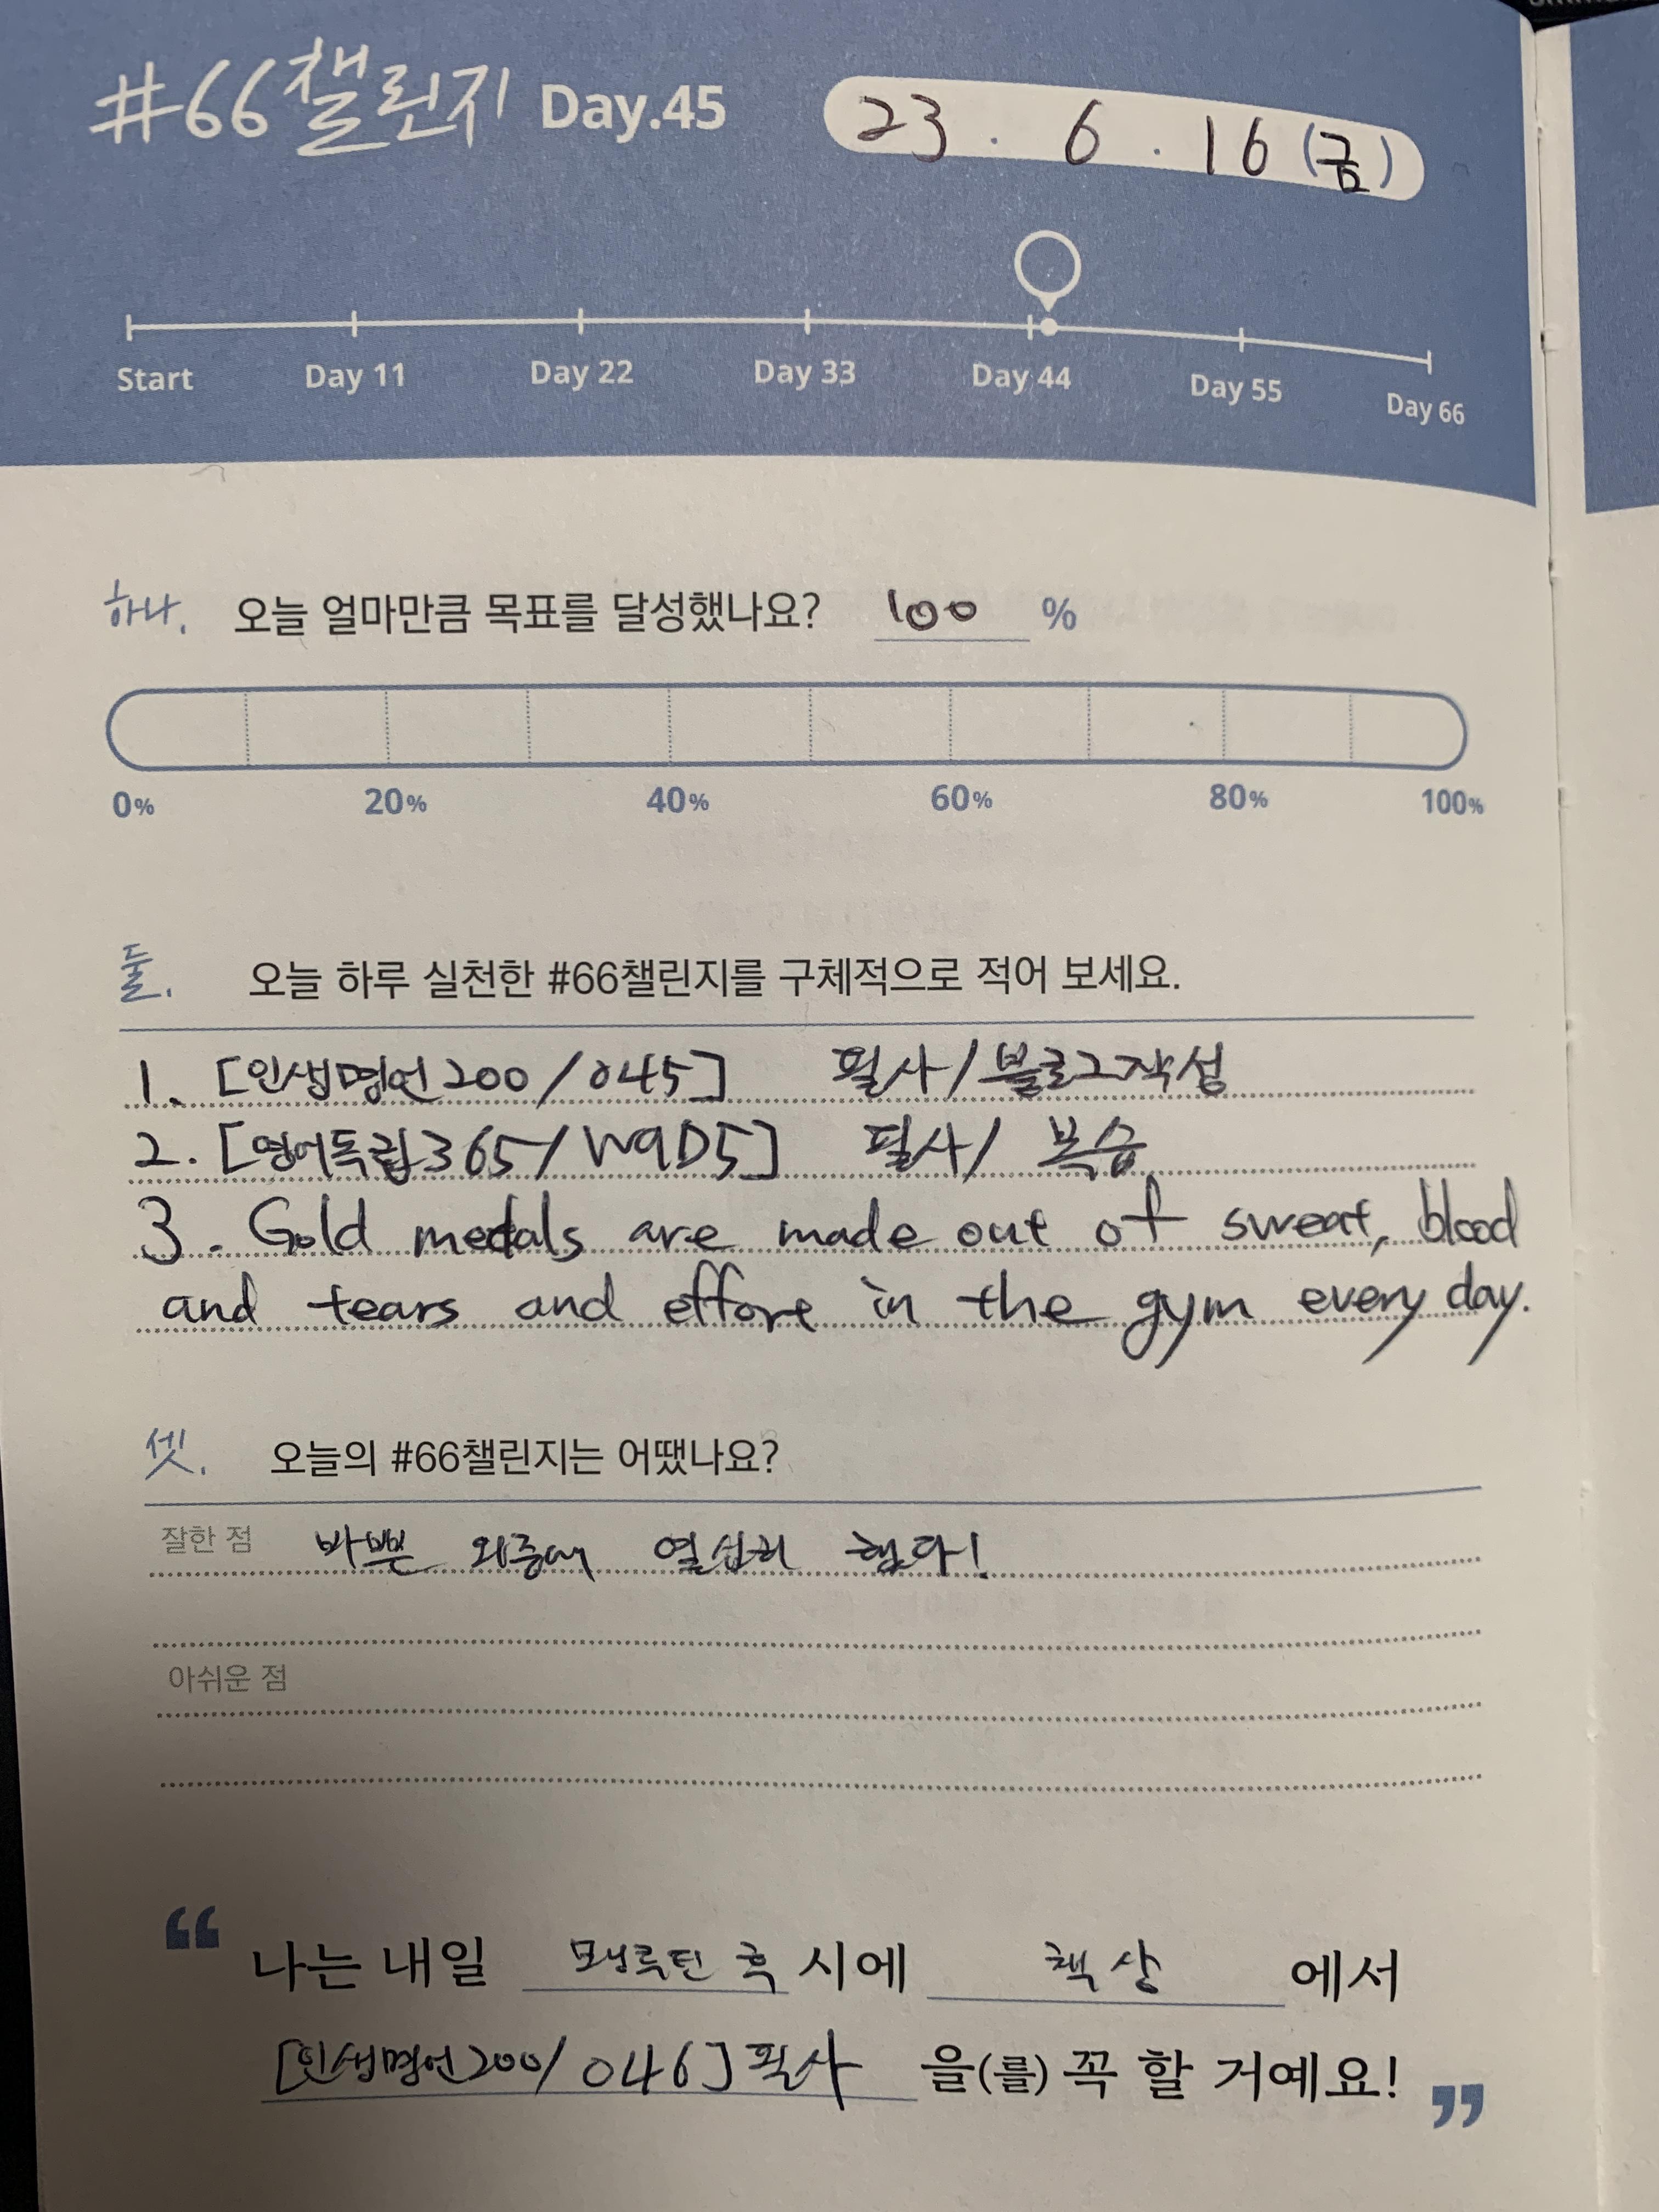 #66챌린지 Day.45 23 . 6 . 16 (금)
Start Day 11 Day 22 Day 33 Day 44 Day 55 Day 66
하나. 오늘 얼마만큼 목표를 달성했나요? 100 %
0% 20% 40% 60% 80% 100%
둘. 오늘 하루 실천한 #66챌린지를 구체적으로 적어 보세요.
1. [인생명언200/045] 필사/블로그작성
2. [영어독립365/W9D5] 필사/ 복습
3. Gold medals are made out of sweat, blood
and tears and effort in the gym every day.
셋. 오늘의 #66챌린지는 어땠나요?
잘한 점 바쁜 와중에 열심히 했다!
아쉬운 점
“ 나는 내일 모닝루틴 후 시에 책상 에서
[인생명언200/046] 필사 을(를) 꼭 할 거예요! ”